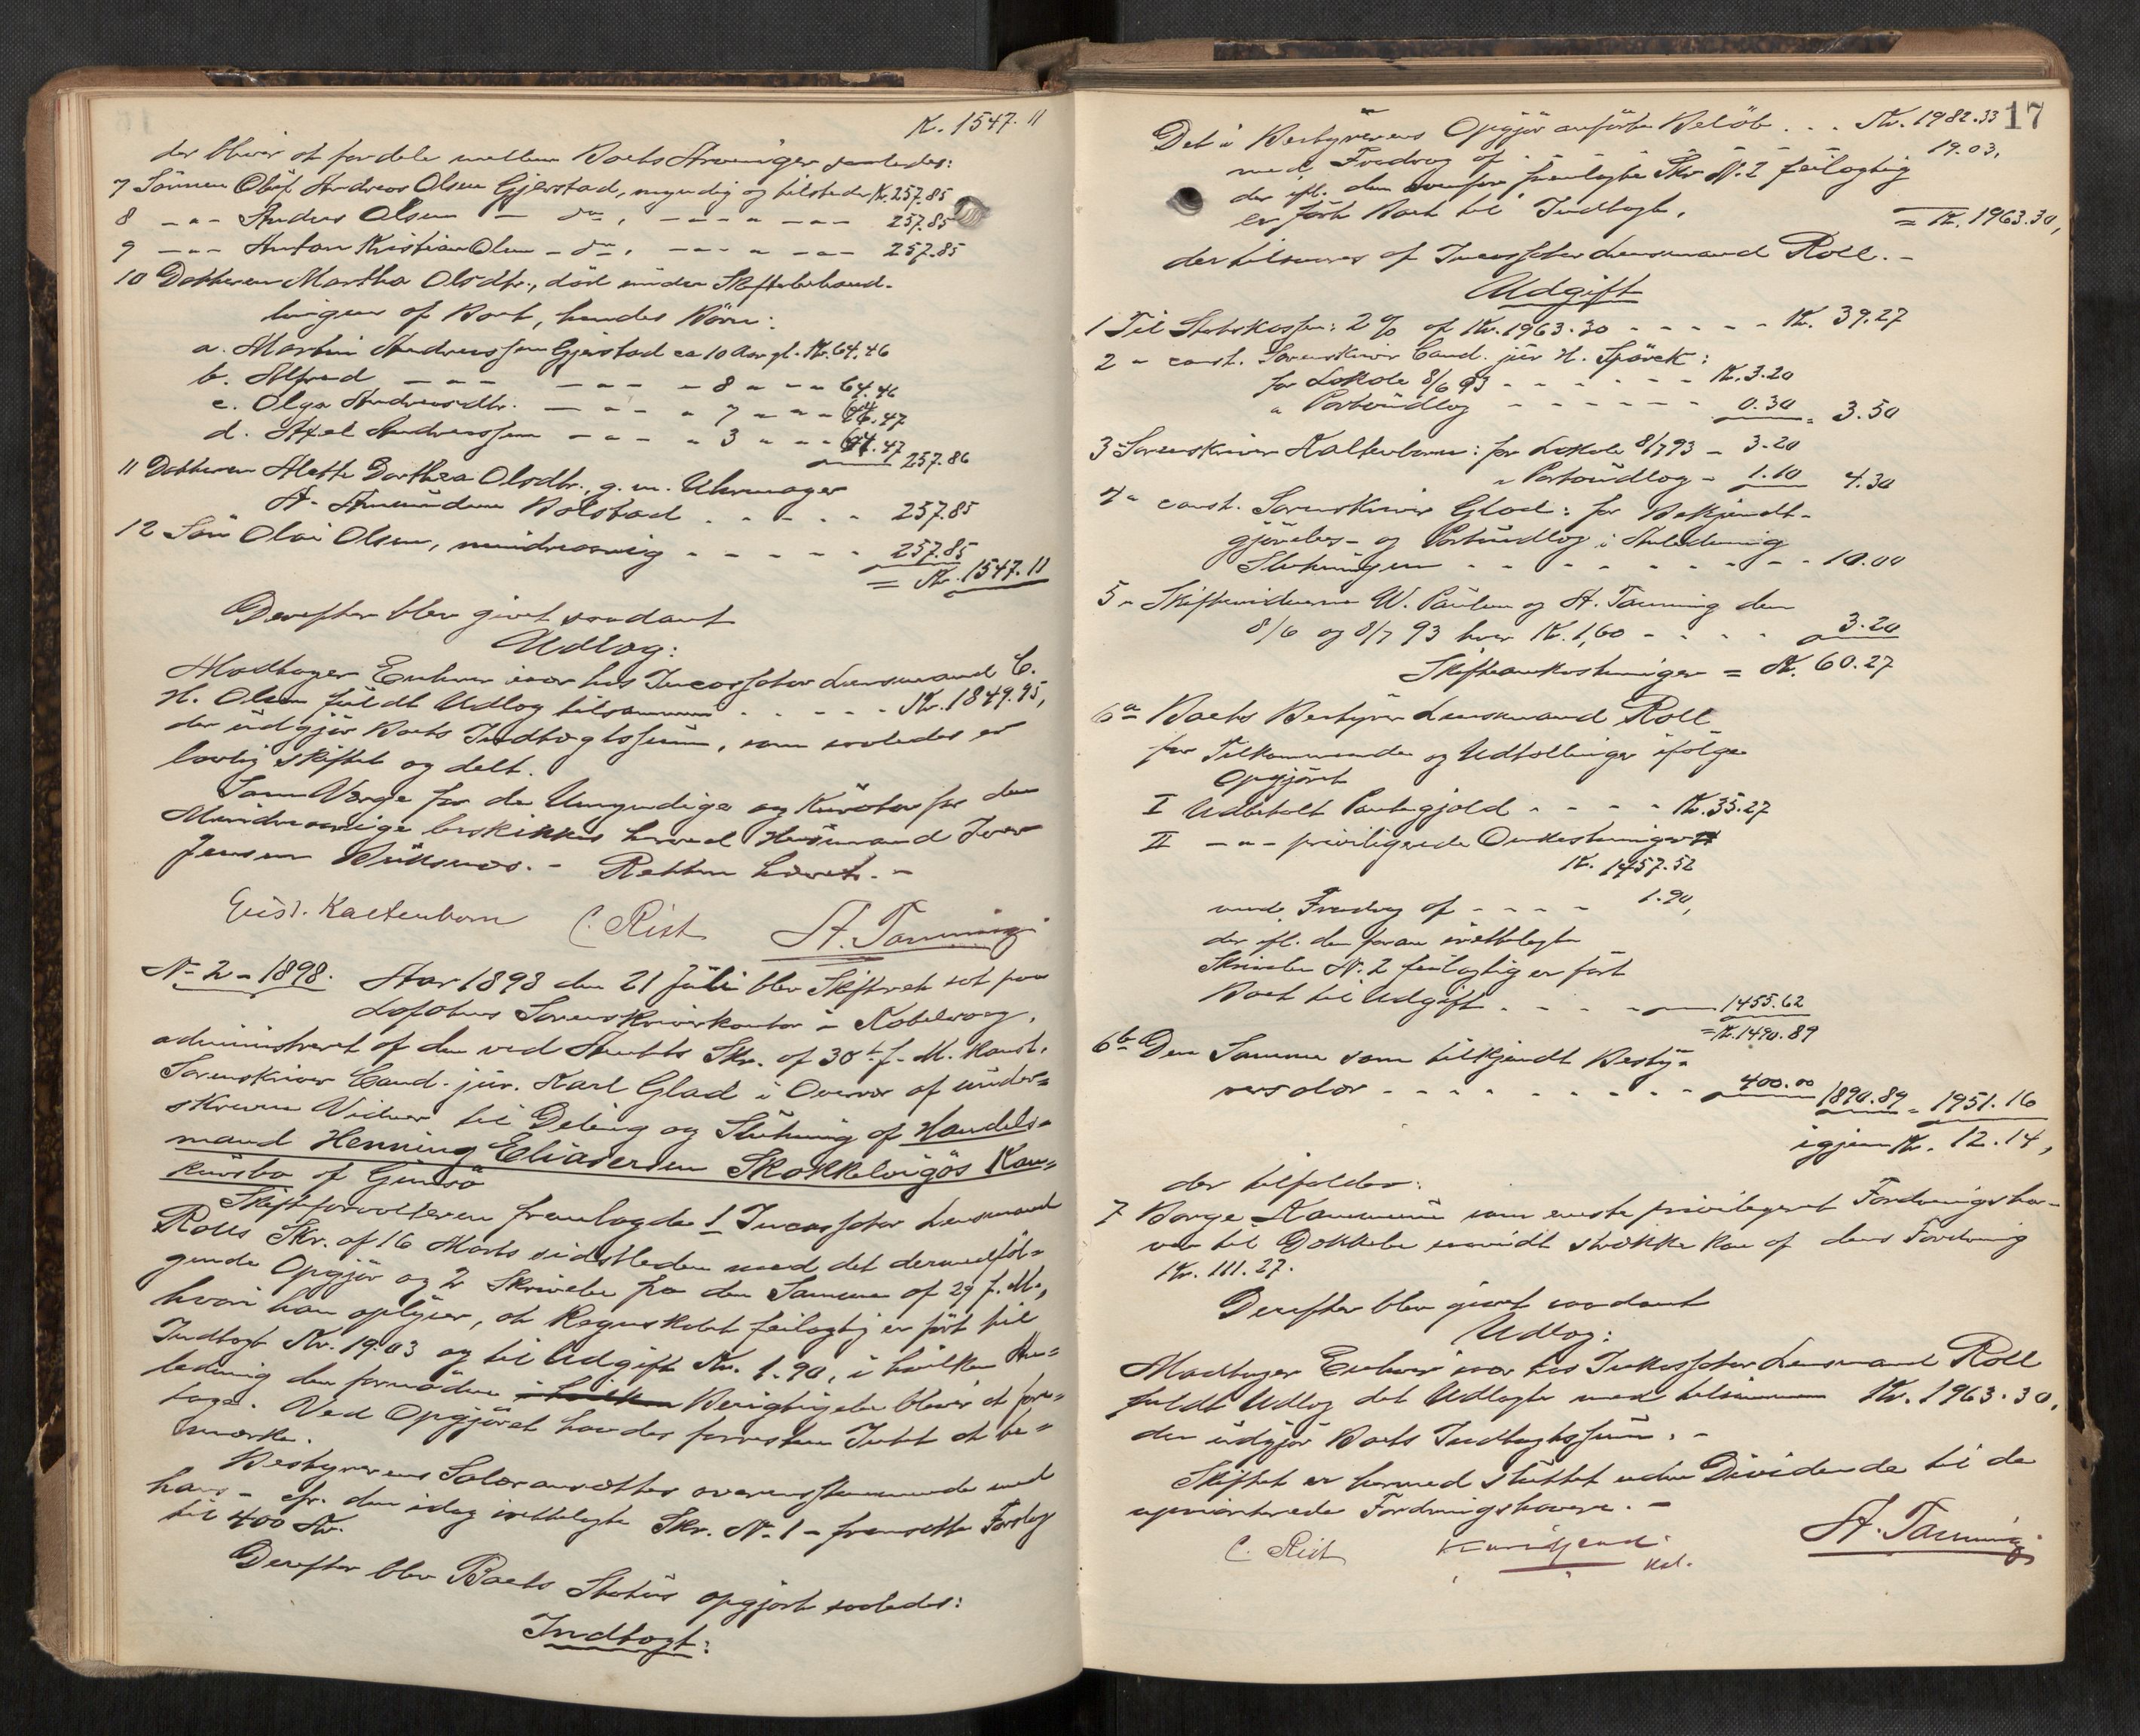 K. 1547.11
der bliver at fordele mellem Boets Arvinger saaledes:
7 Sønnen Oluf Andreas Olsen Gjerstad, myndig og tilstede, Kr. 257.85
8 — " — Anders Olsen — do, — " — " — 257.85
9 — " — Anton Kristian Olsen — do, — " — " — 257.85
10 Datteren Martha Olsdtr., død under Skiftebehand-
lingen af Boet, hendes Børn:
a. Martin Andreassen Gjerstad ca 10 Aar gl. Kr. 64.46
b. Alfred — " — — " — - 8 " — 64.46
c. Olga Andreasdtr. — " — " 7 " — 64.47
d. Axel Andreassen — " — " 3 " — 64.47
257.86
11 Datteren Mette Dorthea Olsdtr., g. m. Uhrmager
A. Amundsen Bolstad . . . . . 257.85
12 Søn Olai Olsen, mindreaarig - - - - - 257.85
= Kr. 1547.11
Derefter blev givet saadant
Udlæg:
Modtager Enhver især hos Incassator Lensmand C.
H. Olsen fuldt Udlæg tilsammen - - - - - Kr. 1849.95,
der udgjør Boets Indtægtssum, som saaledes er
lovlig skiftet og delt.
Som Værge for de Umyndige og Kurator for den
Mindreaarige beskikkes herved Husmand Iver
Jensen . - Retten hævet. -
Gust. Kaltenborn C. Rist A. Tanning
No 2 - 1898. Aar 1898 den 21 Juli blev Skifteret sat paa
Lofotens Sorenskriverkontor i Kabelvaag,
administreret af den ved Amtets Skr. af 30te f. M. konst.
Sorenskriver Cand. jur. Karl Glad i Overvær af under-
skrevne Vidner til Deling og Slutning af Handels-
mand Henning Eliasersen Skokkelvigös Kon-
kursbo af Gimsø
Skifteforvalteren fremlagde 1 Incassator Lensmand
Rolls Skr. af 16 Marts sidstleden med det dermed föl-
gende Opgjør og 2 Skrivelse fra den Samme af 29 f. M.,
hvori han oplyser, at Regnskabet feilagtig er ført til
Indtægt Kr. 19.03 og til Udgift Kr. 1.90, i hvilken An-
ledning den fornødne Berigtigelse bliver at fore-
tage. Ved Opgjøret havdes forresten Intet at be-
mærke.
Bestyrerens Salær ansættes overensstemmende med
hans - cfr. den idag irettelagte Skr. No 1 - fremsatte Forslag
til 400 Kr.
Derefter blev Boets Status opgjort saaledes:
Indtægt:
17
Det i Bestyrerens Opgjør anførte Beløb . . . Kr. 1982.33
med Fradrag af - - - 19.03,
der ifl. den ovenfor fremlagte Skr. No. 2 feilagtig
er ført Boet til Indtægt, = Kr. 1963.30,
der tilsvares af Incassator Lensmand Roll. -
Udgift
1 Til Statskassen: 2 % af Kr. 1963.30 - - - - - Kr. 39.27
2 " const. Sorenskriver Cand. jur H. Spörck:
for Lokale 8/6 93 - - - - - - Kr. 3.20
" Portoudlæg - - - - - - 0.30 = 3.50
3 " Sorenskriver Kaltenborn: for Lokale 8/7 93 - 3.20
" Portoudlæg - 1.10 4.30
4 " const. Sorenskriver Glad: for Bekjendt-
gjørelses- og Portoudlæg i Anledning
Slutningen - - - - - - - - 10.00
5 " Skiftevidnerne W. Paulsen og A. Tanning den
8/6 og 8/7 93 hver Kr. 1,60 - - - - 3.20
Skifteomkostninger = Kr. 60.27
6a Boets Bestyrer Lensmand Roll
for Tilkommende og Udtællinger ifølge
Opgjøret
I Udbetalt Pantegjæld - - - - Kr. 35.27
II — " — priviligerede Omkostninger
Kr. 1457.52
med Fradrag af - - - - 1.90,
der ifl. den foran irettelagte
Skrivelse No. 2 feilagtig er ført
Boet til Udgift . - - - 1455.62
= Kr. 1490.89
6b Den Samme som tilkjendt Besty-
rersalær - - - - - - - - 400.00 1890.89 = 1951.16
igjen Kr. 12.14,
der tilfalder:
7 Borge Kommune som eneste privilegeret Fordringsha-
ver til Dækkelse saavidt strække kan af dens Fordring
Kr. 111.27.
Derefter blev givet saadant
Udlæg:
Modtager Enhver især hos Inkassator Lensmand Roll
fuldt Udlæg det Udlagte med tilsammen Kr. 1963.30,
der udgjør Boets Indtægtssum. -
Skiftet er hermed sluttet uden Dividende til de
uprioriterede Fordringshavere. -
C. Rist Karl Glad kst. A. Tanning